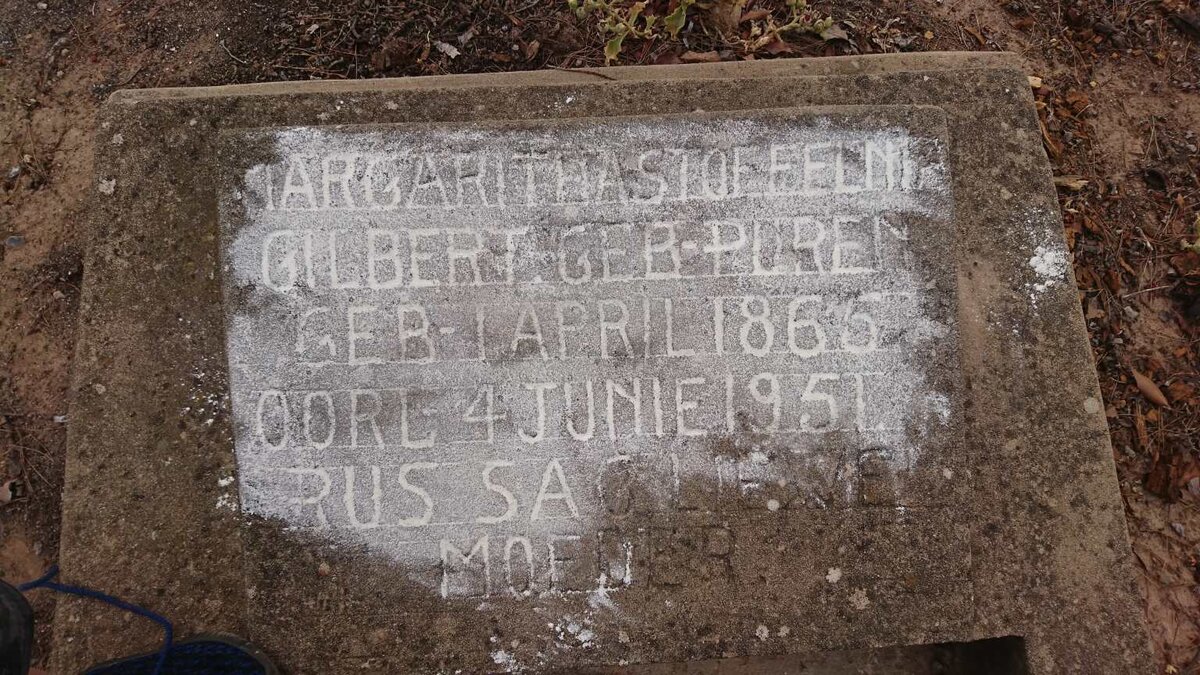 MARGARITHA STOFFELNI
GILBERT. GEB-PUREN
GEB-1 APRIL 1866
OORL-4 JUNIE 1951.
RUS SAG LIEWE
MOEDER